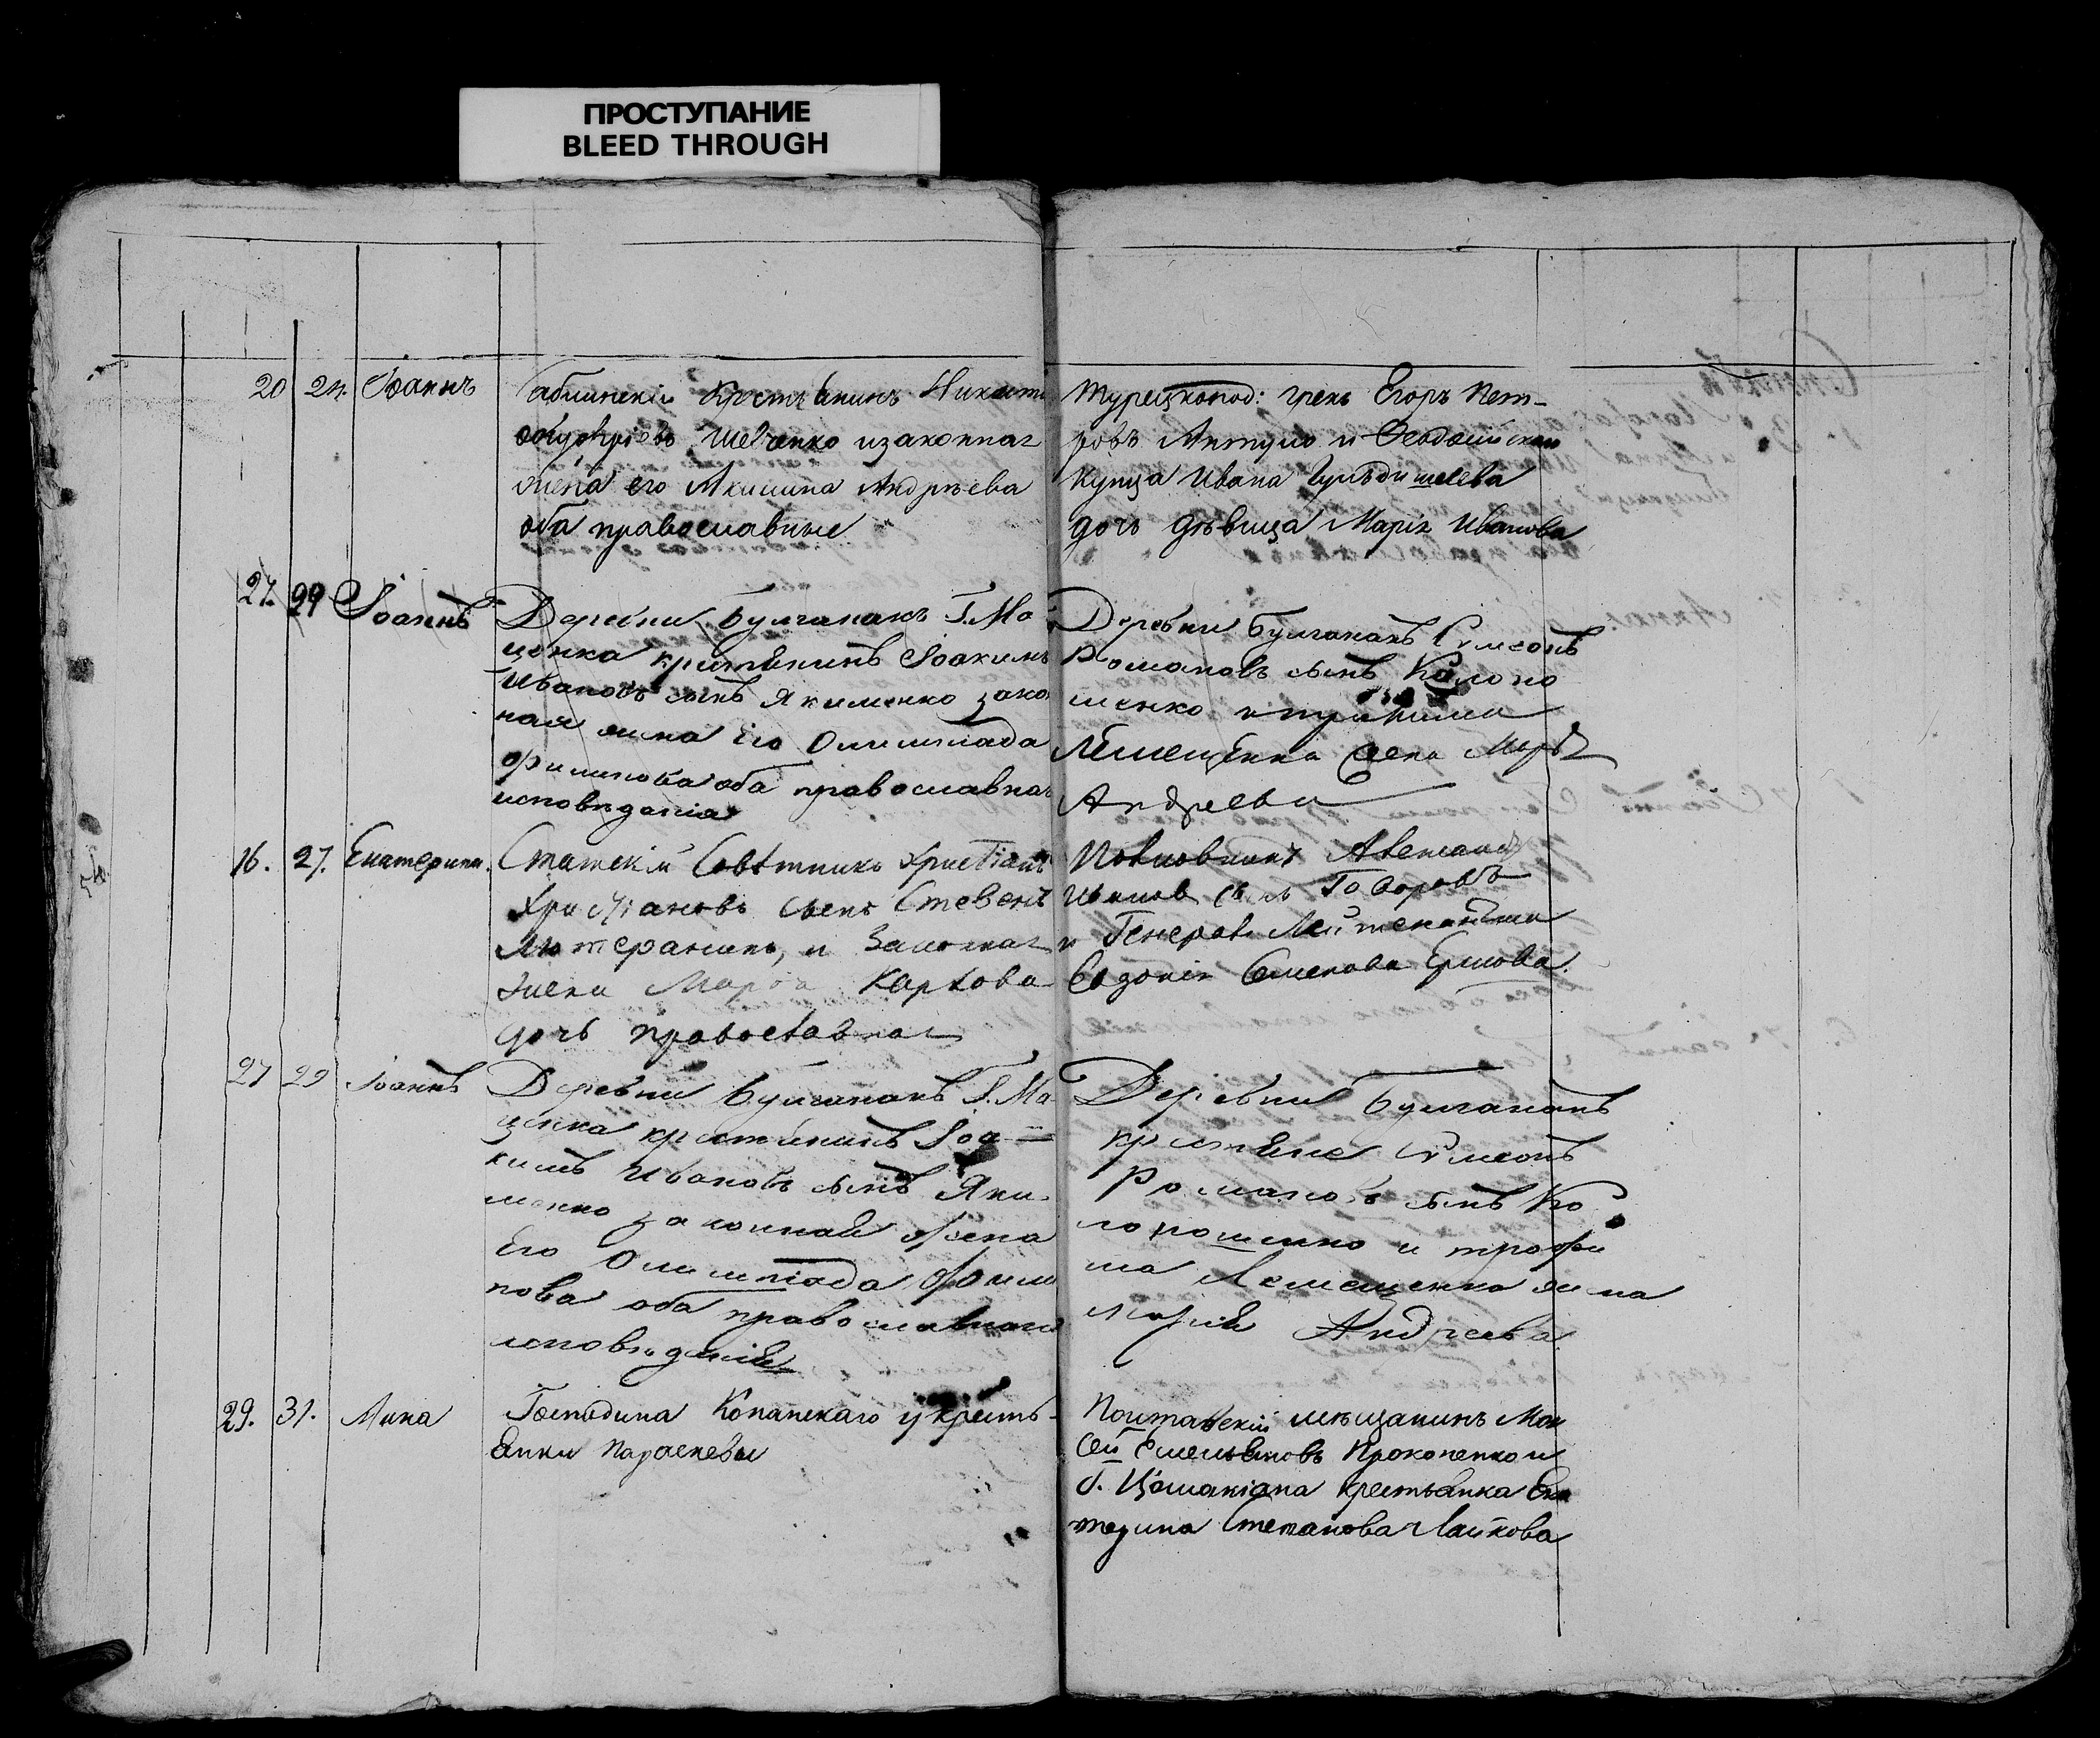 ПРОСТУПАНИЕ
BLEED THROUGH
20 24. Іоаннъ
Саблинскій Крестьянинъ Никита
Шевченко изаконная
жена его Акилина Андрѣева
оба православные
Турецкопод: грекъ Егоръ Пет-
ровъ и Ѳеодосійскаго
Купца Ивана
дочь дѣвица Марія Иванова
27. 29 Іоаннъ
Деревни Булганакъ Г. Ма
ценка крестьянинъ Іоакимъ
Ивановъ сынъ Якименко зако
ная жена Его Олимпіада
Филипова оба православнаго
исповѣданія
Деревни Булганакъ Сѵмеонъ
Романовъ сынъ
шенко
Лемещенка жена Марія
Андреева
16. 27. Екатерина.
Статскій Совѣтникъ Христіанъ
Христіановъ сынъ Стевенъ
Лютеранинъ, и Законная
жена Марфа Карлова
дочь православная
Полковникъ Александръ
Ивановъ сынъ Говоровъ
и Генералъ Лейтенантша
Евдокія Семенова Ершова.
27 29 Іоаннъ
Деревни Булганакъ Г. Ма
ценка крестьянинъ Іоа=
кимъ Ивановъ сынъ Яки-
менко законная жена
Его Олимпіада Фили
пова оба православнаго
исповѣданія
Деревни Булганакъ
крестьяне Сѵмеонъ
Романовъ сынъ Ко
лопошенко и трофи
ма Лемещенка жена
марія Андреева
29. 31. Мина
Господина Копанскаго у кресть-
янки Параскевы
Полтавскій мѣщанинъ Мой
сей Емельяновъ Прокопенко и
г. Цомакіона крестьянка Ека
терина Степанова Лайкова